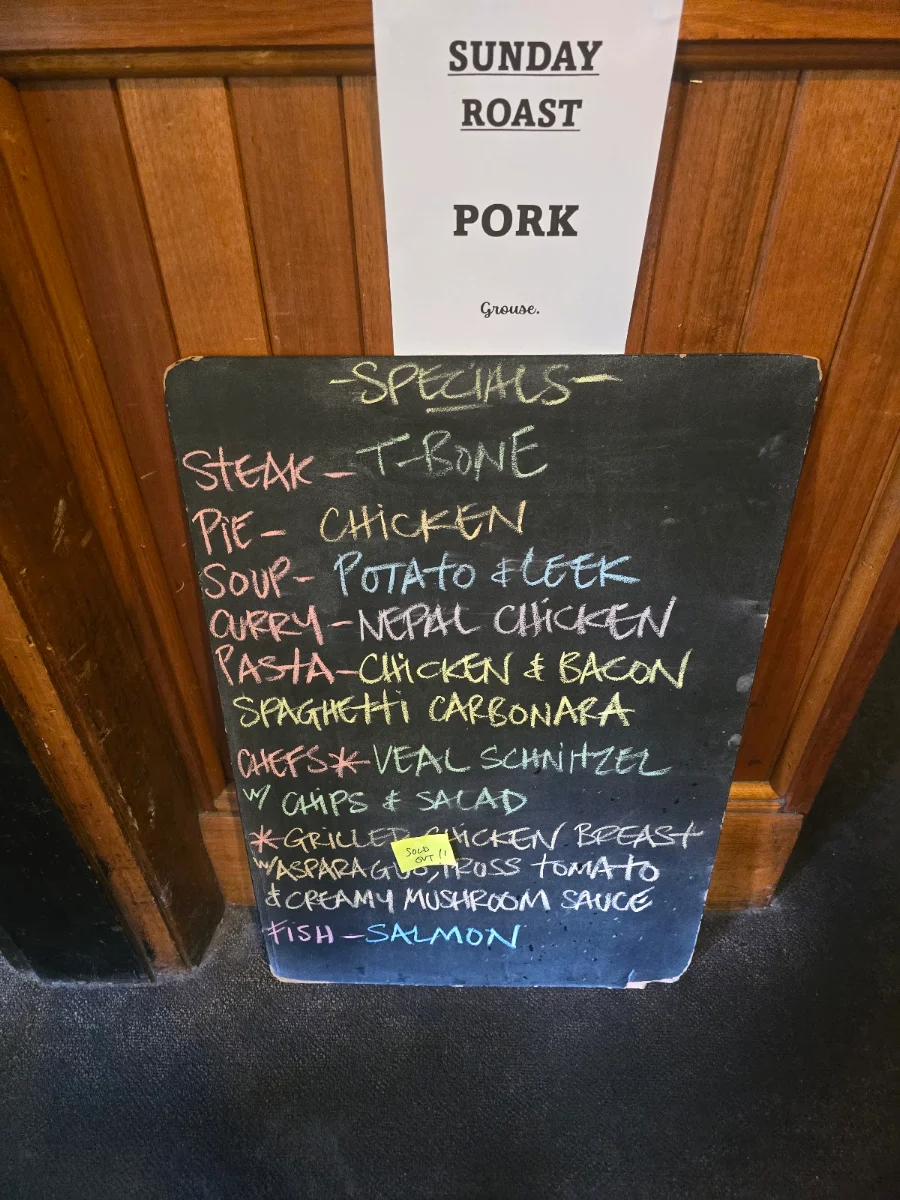 SUNDAY
ROAST
PORK
Grouse.
-SPECIALS-
STEAK - T-BONE
PIE - CHICKEN
SOUP - POTATO & LEEK
CURRY - NEPAL CHICKEN
PASTA - CHICKEN & BACON
SPAGHETTI CARBONARA
CHEFS * VEAL SCHNITZEL
W/ CHIPS & SALAD
* GRILLED CHICKEN BREAST
SOLD
OUT !!
W/ ASPARAGUS, TROSS TOMATO
& CREAMY MUSHROOM SAUCE
FISH - SALMON